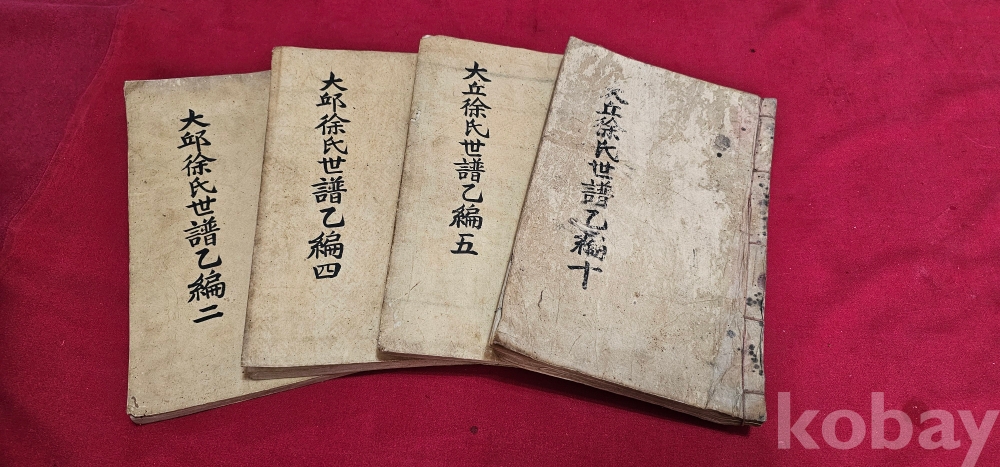 大邱徐氏世譜乙編二
大邱徐氏世譜乙編四
大丘徐氏世譜乙編五
大丘徐氏世譜乙編十
kobay